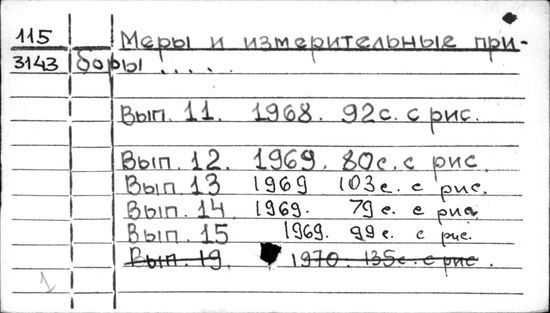 115 Меры и измерительные при-
3143 боры . . . . .
Вып. 11. 1968. 92с. с рис.
Вып. 12. 1969. 80с. с рис
Вып. 13 1969 103с. с рис.
Вып. 14 1969. 79с. с рис.
Вып. 15 1969. 99с. с рис.
Вып. 19. 1970. 135с. с рис.
1